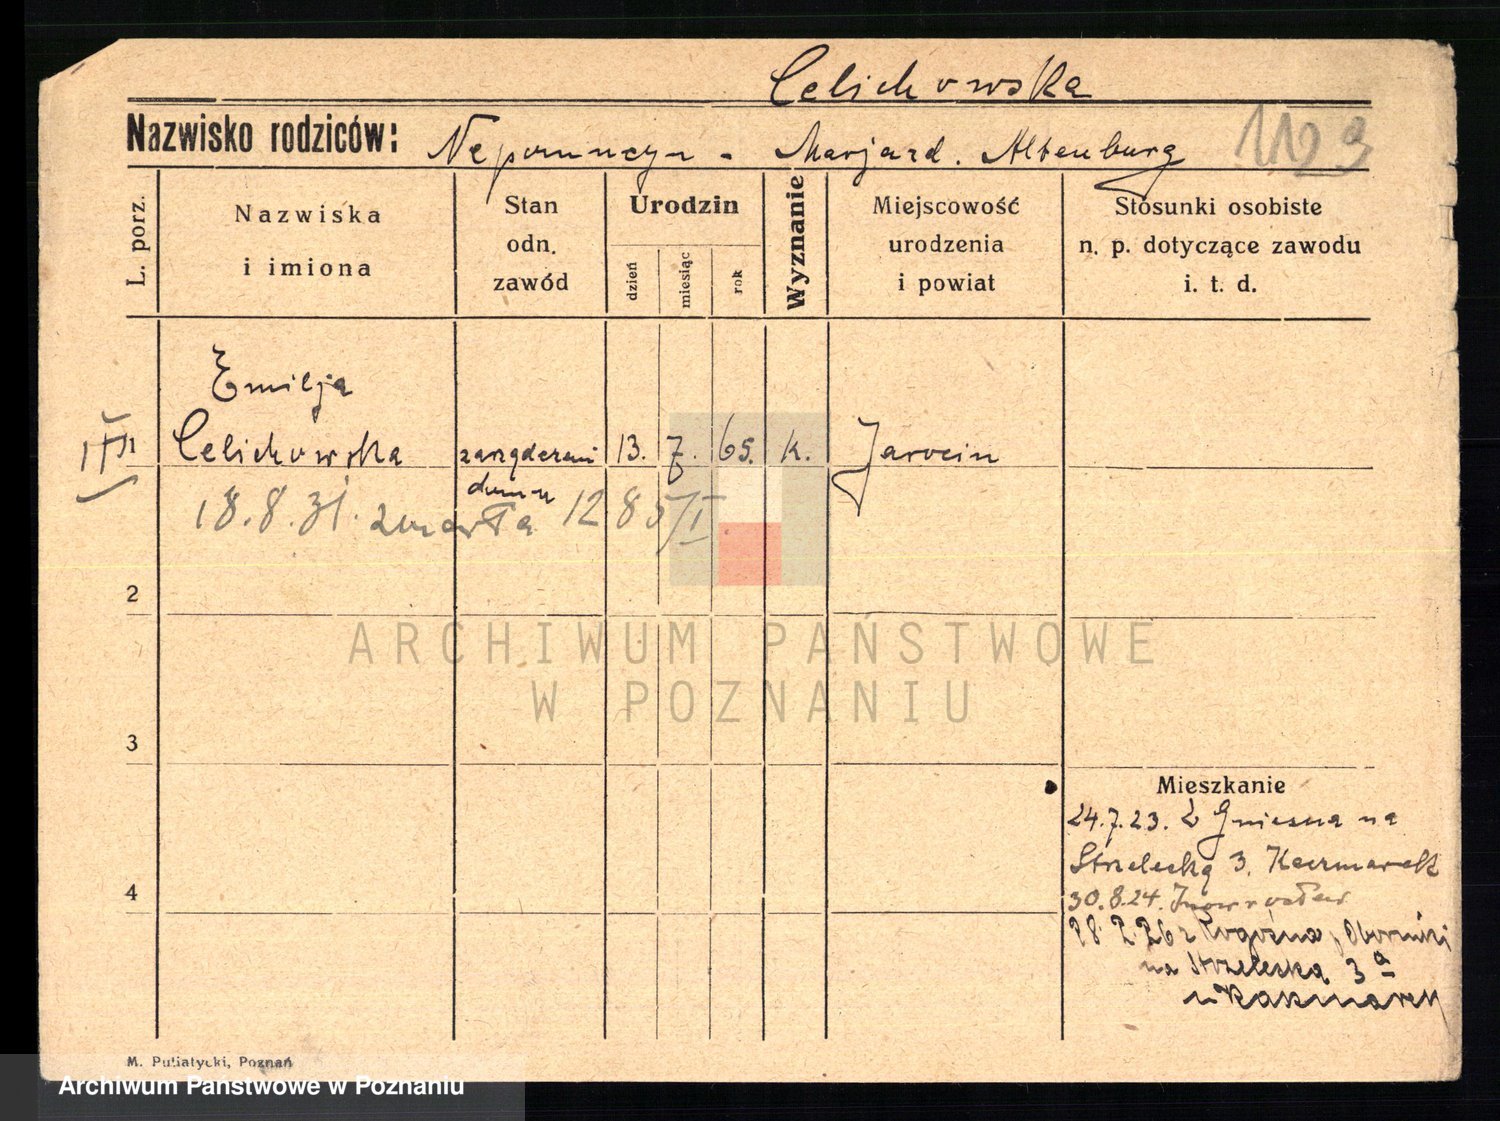 Celichowska
Nazwisko rodziców: Nepomucyn - Marjard. Altenburg 1123
L. porz.
Nazwiska
i imiona
Stan
odn.
zawód
Urodzin
dzień
miesiąc
rok
Wyznanie
Miejscowość
urodzenia
i powiat
Stosunki osobiste
n. p. dotyczące zawodu
i. t. d.
Emilja
Celichowska 13. 7. 65. k. Jarocin
domu
18.8.31. zmarła 12 85/I.
2
ARCHIWUM PAŃSTWOWE
W POZNANIU
3
Mieszkanie
24.7.23. Z Gniezna na
Strzelecką 3. Kaczmarek
4
30.8.24. Inowrocław
28.2.26 z Rogoźna, Oborniki
na Strzelecką 3a
u Kaczmarek
M. Putiatycki, Poznań
Archiwum Państwowe w Poznaniu